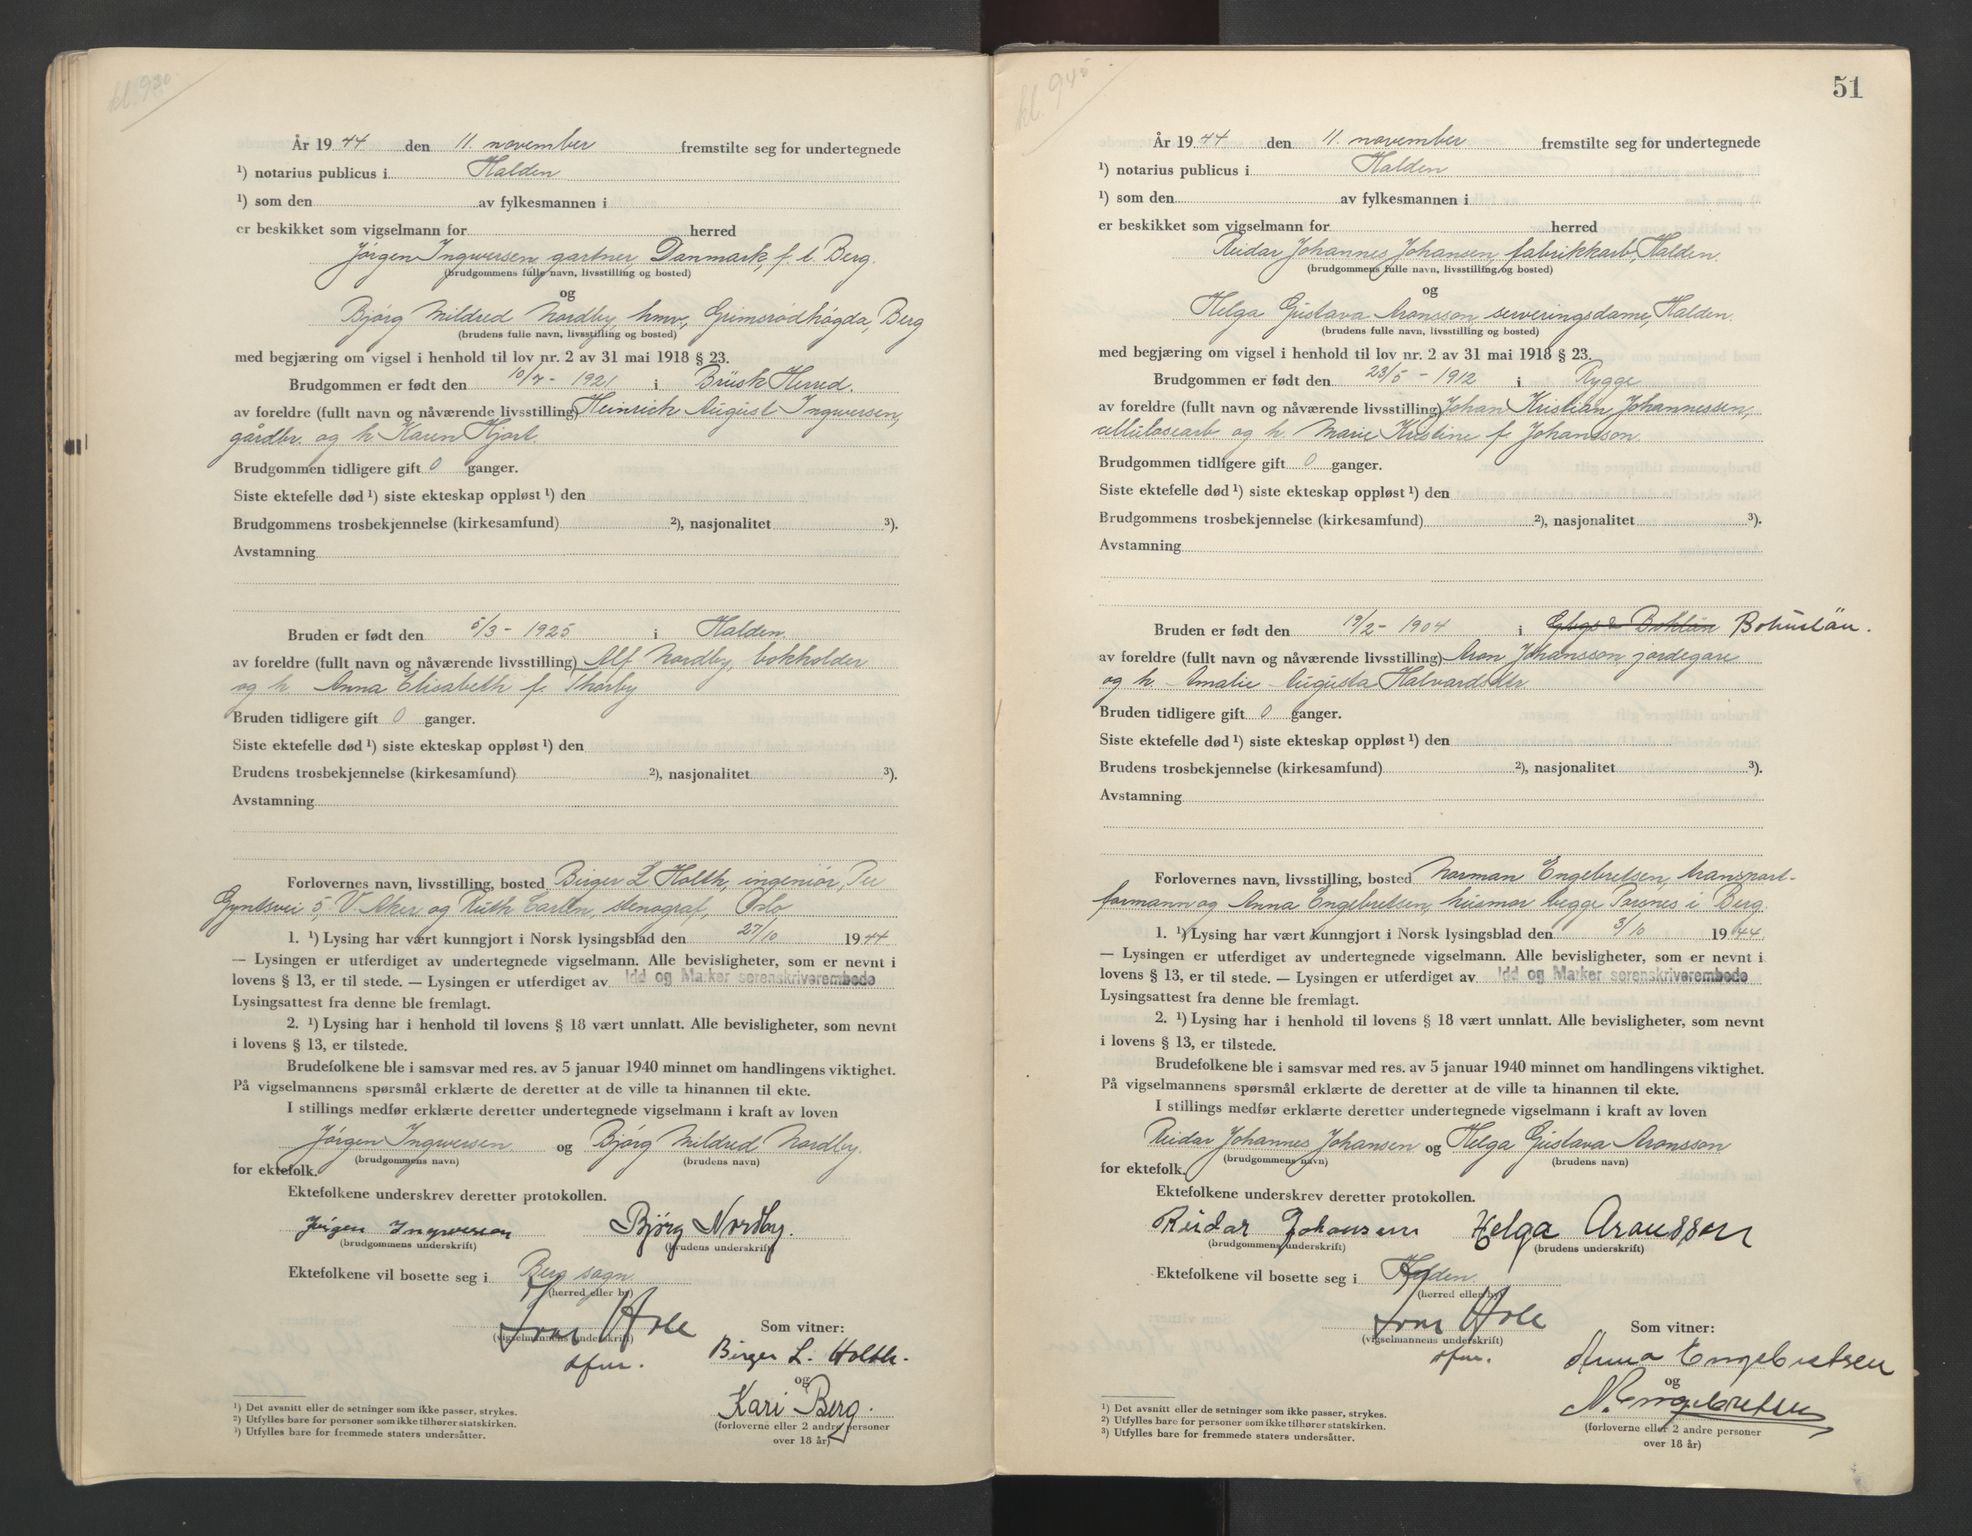 kl. 9³⁰
År 1944 den 11. november fremstilte seg for undertegnede
¹) notarius publicus i Halden
¹) som den av fylkesmannen i
er beskikket som vigselmann for herred
Jørgen Ingwersen, gartner, Danmark, f. t. Berg.
(brudgommens fulle navn, livsstilling og bosted)
og
Bjørg Mildred Nordby, hmv, Grimsrødhøgda, Berg
(brudens fulle navn, livsstilling og bosted)
med begjæring om vigsel i henhold til lov nr. 2 av 31 mai 1918 § 23.
Brudgommen er født den 10/7 - 1921 i Brüsk Herred.
av foreldre (fullt navn og nåværende livsstilling) Heinrich August Ingwersen,
gårdbr. og h. Karen Hjort.
Brudgommen tidligere gift 0 ganger.
Siste ektefelle død ¹) siste ekteskap oppløst ¹) den
Brudgommens trosbekjennelse (kirkesamfund) ²), nasjonalitet ³).
Avstamning
Bruden er født den 5/3 - 1925 i Halden.
av foreldre (fullt navn og nåværende livsstilling) Alf Nordby, bokholder
og h. Anna Elisabeth f. Thorby
Bruden tidligere gift 0 ganger.
Siste ektefelle død ¹) siste ekteskap oppløst ¹) den
Brudens trosbekjennelse (kirkesamfund) ²), nasjonalitet ³).
Avstamning
Forlovernes navn, livsstilling, bosted Birger L. Holth, ingeniør, Per
Gyntsvei 5, V. Aker og Ruth Carlen, stenograf, Oslo
1. ¹) Lysing har vært kunngjort i Norsk lysingsblad den 27/10 1944
— Lysingen er utferdiget av undertegnede vigselmann. Alle bevisligheter, som er nevnt i
lovens § 13, er til stede. — Lysingen er utferdiget av Idd og Marker sorenskriverembede
Lysingsattest fra denne ble fremlagt.
2. ¹) Lysing har i henhold til lovens § 18 vært unnlatt. Alle bevisligheter, som nevnt
i lovens § 13, er tilstede.
Brudefolkene ble i samsvar med res. av 5 januar 1940 minnet om handlingens viktighet.
På vigselmannens spørsmål erklærte de deretter at de ville ta hinannen til ekte.
I stillings medfør erklærte deretter undertegnede vigselmann i kraft av loven
Jørgen Ingwersen og Bjørg Mildred Nordby.
(brudgommens navn) (brudens navn)
for ektefolk.
Ektefolkene underskrev deretter protokollen.
Jørgen Ingwersen Bjørg Nordby.
(brudgommens underskrift) (brudens underskrift)
Ektefolkene vil bosette seg i Berg sogn.
(herred eller by)
Hole
(vigselmannens underskrift)
Som vitner:
Birger L. Holth.
og
Kari Berg.
(forloverne eller 2 andre personer
over 18 år)
¹) Det avsnitt eller de setninger som ikke passer, strykes.
²) Utfylles bare for personer som ikke tilhører statskirken.
³) Utfylles bare for fremmede staters undersåtter.
kl. 9⁴⁵
51
År 1944 den 11. november fremstilte seg for undertegnede
¹) notarius publicus i Halden
¹) som den av fylkesmannen i
er beskikket som vigselmann for herred
Reidar Johannes Johansen, fabrikkarb., Halden.
(brudgommens fulle navn, livsstilling og bosted)
og
Helga Gustava Aronsson, serveringsdame, Halden.
(brudens fulle navn, livsstilling og bosted)
med begjæring om vigsel i henhold til lov nr. 2 av 31 mai 1918 § 23.
Brudgommen er født den 23/5 - 1912 i Rygge
av foreldre (fullt navn og nåværende livsstilling) Johan Kristian Johannessen,
cellulosearb og h. Marie Kristine f. Johansson.
Brudgommen tidligere gift 0 ganger.
Siste ektefelle død ¹) siste ekteskap oppløst ¹) den
Brudgommens trosbekjennelse (kirkesamfund) ²), nasjonalitet ³).
Avstamning
Bruden er født den 19/2 - 1904 i Bohuslän.
av foreldre (fullt navn og nåværende livsstilling) Aron Johansson, jordegare
og h. Amalie Augusta Halvardsdtr
Bruden tidligere gift 0 ganger.
Siste ektefelle død ¹) siste ekteskap oppløst ¹) den
Brudens trosbekjennelse (kirkesamfund) ²), nasjonalitet ³).
Avstamning
Forlovernes navn, livsstilling, bosted Norman Engebretsen, transport-
formann og Anna Engebretsen, husmor begge Torsnes i Berg.
1. ¹) Lysing har vært kunngjort i Norsk lysingsblad den 3/10 1944
— Lysingen er utferdiget av undertegnede vigselmann. Alle bevisligheter, som er nevnt i
lovens § 13, er til stede. — Lysingen er utferdiget av Idd og Marker sorenskriverembede
Lysingsattest fra denne ble fremlagt.
2. ¹) Lysing har i henhold til lovens § 18 vært unnlatt. Alle bevisligheter, som nevnt
i lovens § 13, er tilstede.
Brudefolkene ble i samsvar med res. av 5 januar 1940 minnet om handlingens viktighet.
På vigselmannens spørsmål erklærte de deretter at de ville ta hinannen til ekte.
I stillings medfør erklærte deretter undertegnede vigselmann i kraft av loven
Reidar Johannes Johansen og Helga Gustava Aronsson
(brudgommens navn) (brudens navn)
for ektefolk.
Ektefolkene underskrev deretter protokollen.
Reidar Johansen Helga Aronsson
(brudgommens underskrift) (brudens underskrift)
Ektefolkene vil bosette seg i Halden.
(herred eller by)
Hole
(vigselmannens underskrift)
Som vitner:
Anna Engebretsen
og
N. Engebretsen
(forloverne eller 2 andre personer
over 18 år)
¹) Det avsnitt eller de setninger som ikke passer, strykes.
²) Utfylles bare for personer som ikke tilhører statskirken.
³) Utfylles bare for fremmede staters undersåtter.